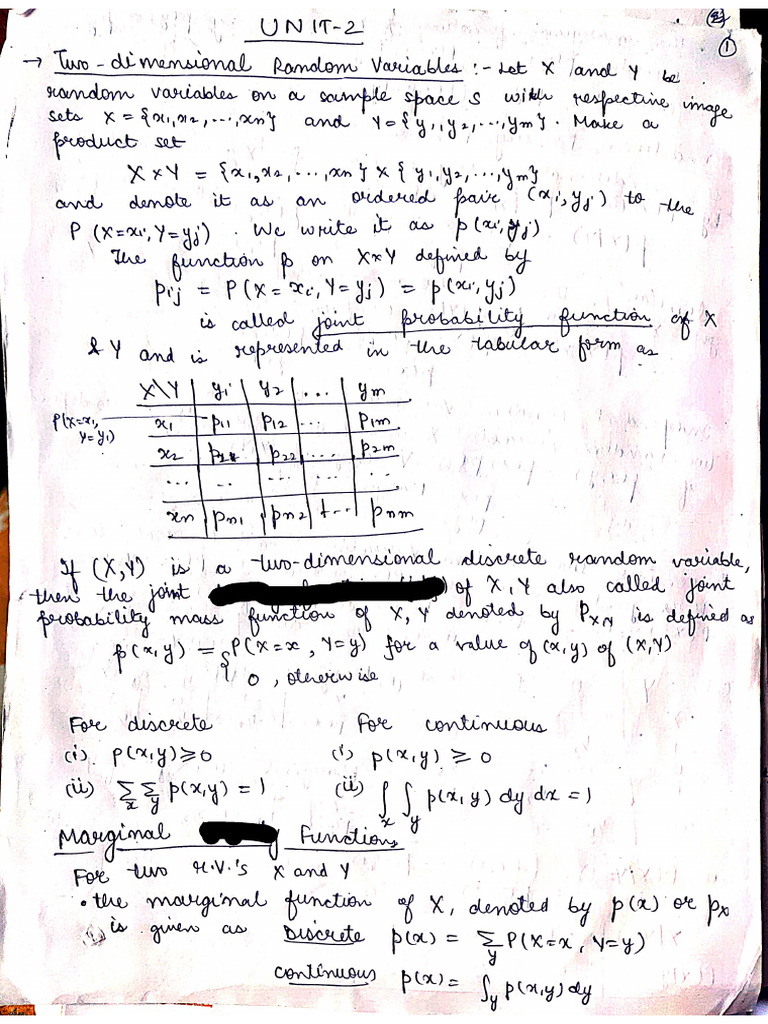 UNIT-2
①
→ Two-dimensional Random Variables :- Let X and Y be
random variables on a sample space S with respective image
sets X = {x1, x2, ..., xn} and Y = {y1, y2, ..., ym}. Make a
product set
X × Y = {x1, x2, ..., xn} × {y1, y2, ..., ym}
and denote it as an ordered pair (xi, yj) to the
P (X=xi, Y=yj). We write it as p(xi, yj)
The function p on X×Y defined by
pij = P(X = xi, Y = yj) = p(xi, yj)
is called joint probability function of X
& Y and is represented in the tabular form as
X\Y y1 y2 ... ym
P(X=x1, Y=y1) x1 p11 p12 ... p1m
x2 p21 p22 ... p2m
... .. ... ... ..
xn pn1 pn2 ... pnm
If (X,Y) is a two-dimensional discrete random variable,
then the joint of X, Y also called joint
probability mass function of X, Y denoted by PX,Y is defined as
p(x,y) = { P(X = x, Y = y) for a value of (x,y) of (X,Y)
0, otherwise
For discrete For continuous
(i). p(x,y) ≥ 0 (i) p(x,y) ≥ 0
(ii) Σx Σy p(x,y) = 1 (ii) ∫x ∫y p(x,y) dy dx = 1
Marginal Functions
For two r.v.'s X and Y
• the marginal function of X, denoted by p(x) or px
is given as Discrete p(x) = Σy P(X=x, Y=y)
continuous p(x) = ∫y p(x,y) dy